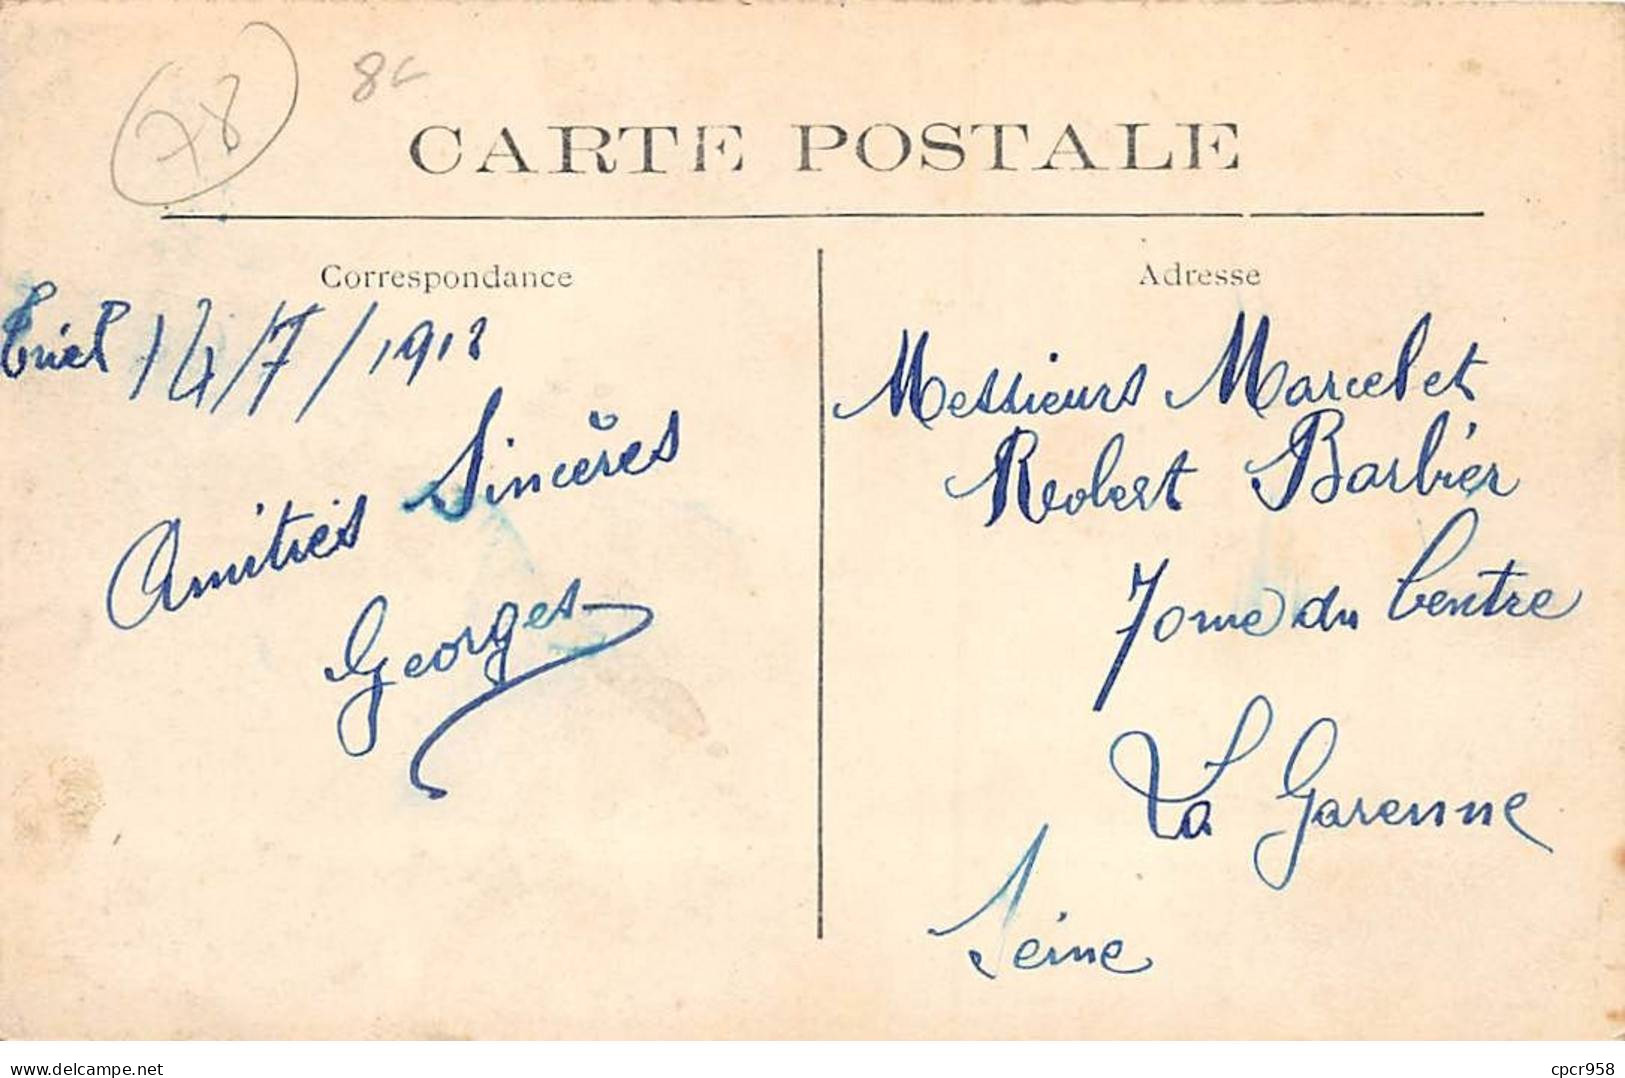 78 8€
CARTE POSTALE
Correspondance
Triel 14/7/1912
Amitiés Sincères
Georges
Adresse
Messieurs Marcel et
Robert Barbier
du Centre
La Garenne
Seine
delcampe.net
cpcr958